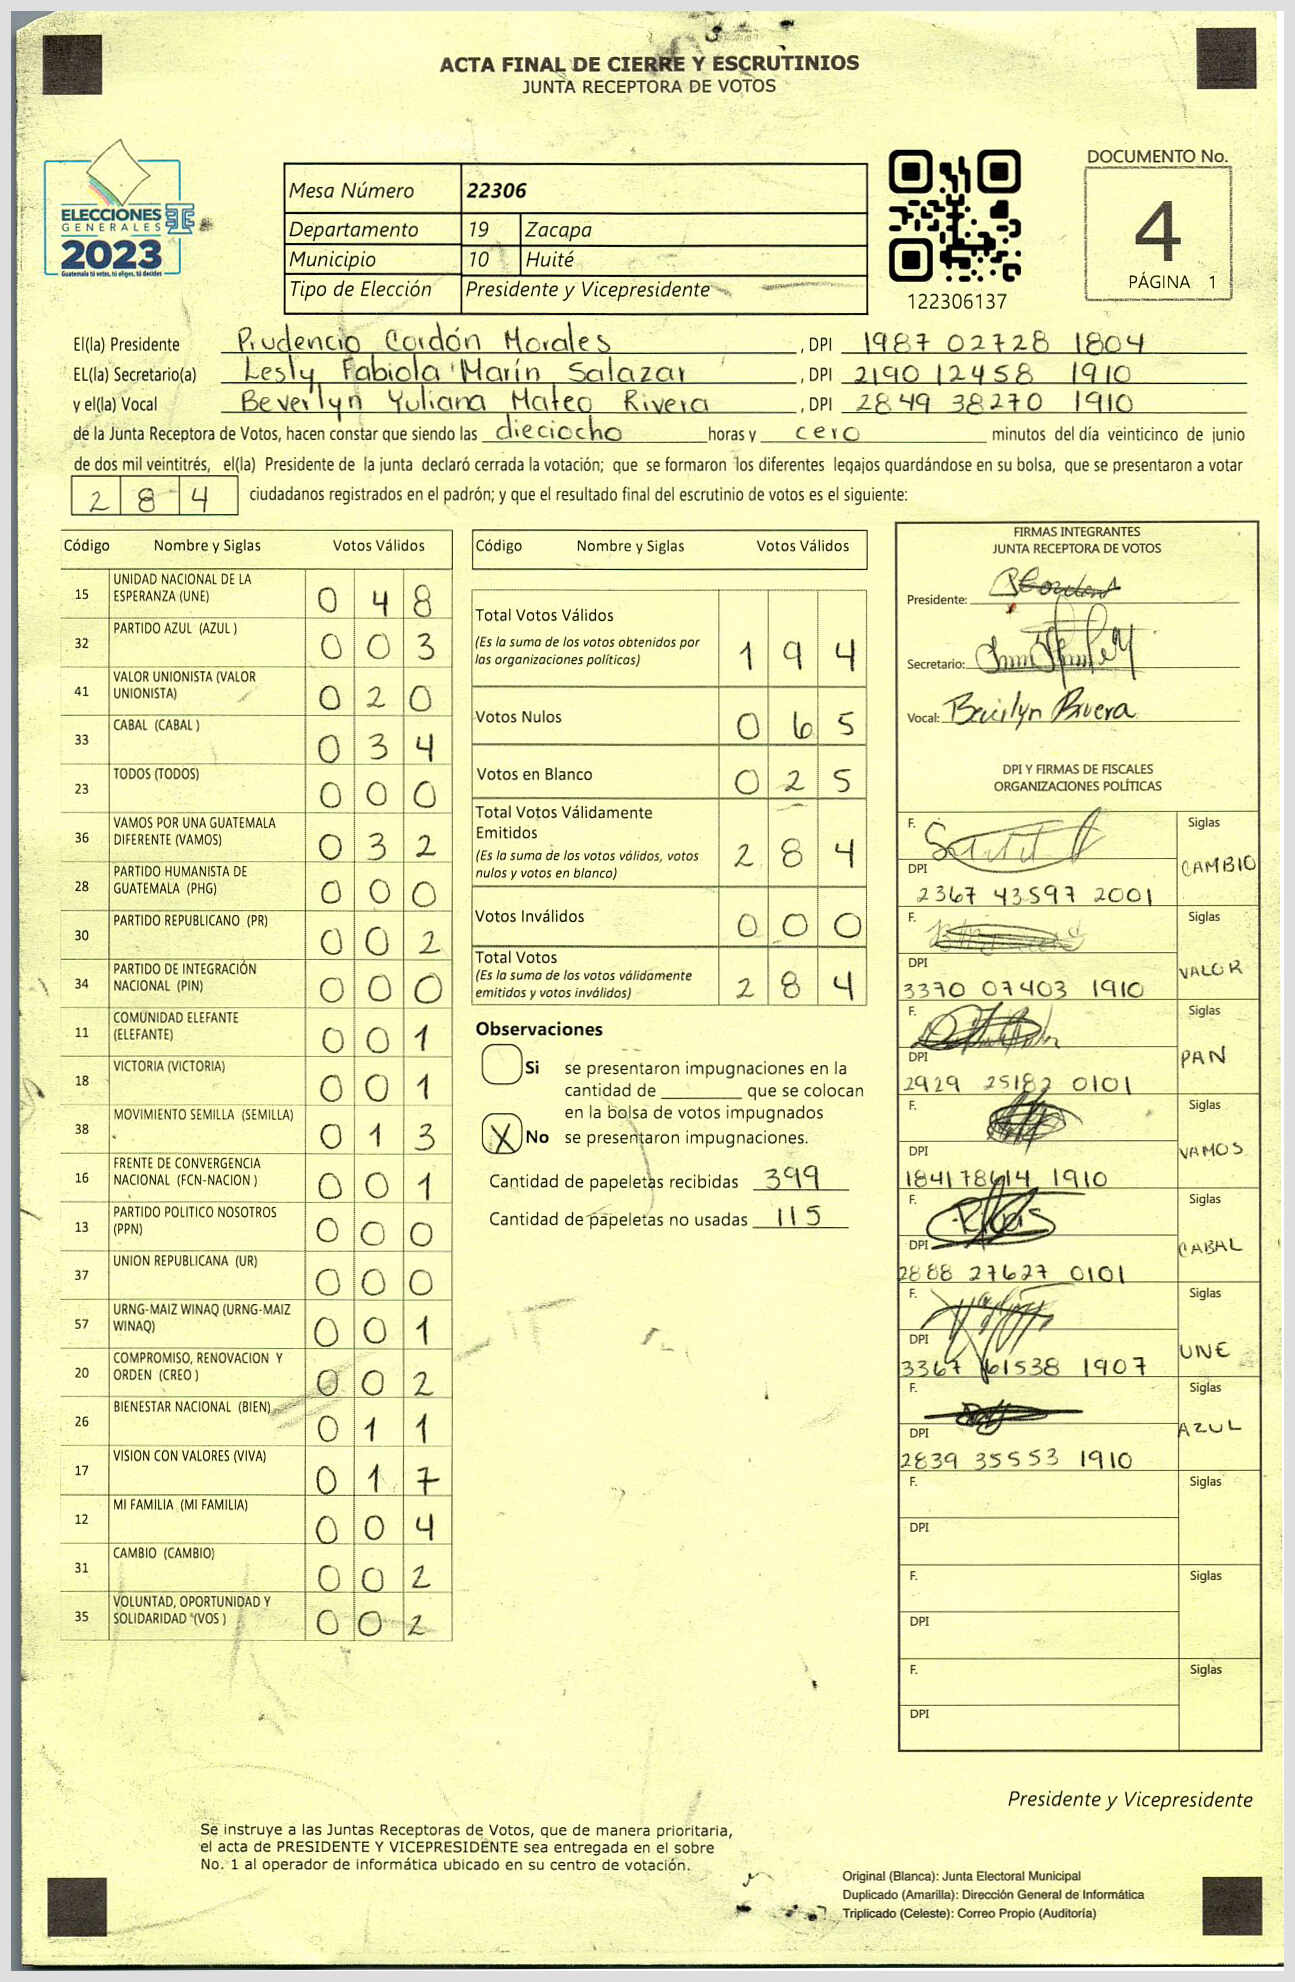 ACTA FINAL DE CIERRE Y ESCRUTINIOS
JUNTA RECEPTORA DE VOTOS
ELECCIONES
GENERALES
2023
Guatemala tú votas, tú eliges, tú decides
Mesa Número 22306
Departamento 19 Zacapa
Municipio 10 Huité
Tipo de Elección Presidente y Vicepresidente
122306137
DOCUMENTO No.
4
PÁGINA 1
El(la) Presidente Prudencio Cordón Morales , DPI 1987 02728 1804
EL(la) Secretario(a) Lesly Fabiola Marín Salazar , DPI 2190 12458 1910
y el(la) Vocal Beverlyn Yuliana Mateo Rivera , DPI 2849 38270 1910
de la Junta Receptora de Votos, hacen constar que siendo las dieciocho horas y cero minutos del día veinticinco de junio
de dos mil veintitrés, el(la) Presidente de la junta declaró cerrada la votación; que se formaron los diferentes legajos guardándose en su bolsa, que se presentaron a votar
284 ciudadanos registrados en el padrón; y que el resultado final del escrutinio de votos es el siguiente:
Código Nombre y Siglas Votos Válidos
15 UNIDAD NACIONAL DE LA ESPERANZA (UNE) 048
32 PARTIDO AZUL (AZUL ) 003
41 VALOR UNIONISTA (VALOR UNIONISTA) 020
33 CABAL (CABAL ) 034
23 TODOS (TODOS) 000
36 VAMOS POR UNA GUATEMALA DIFERENTE (VAMOS) 032
28 PARTIDO HUMANISTA DE GUATEMALA (PHG) 000
30 PARTIDO REPUBLICANO (PR) 002
34 PARTIDO DE INTEGRACIÓN NACIONAL (PIN) 000
11 COMUNIDAD ELEFANTE (ELEFANTE) 001
18 VICTORIA (VICTORIA) 001
38 MOVIMIENTO SEMILLA (SEMILLA) 013
16 FRENTE DE CONVERGENCIA NACIONAL (FCN-NACION ) 001
13 PARTIDO POLITICO NOSOTROS (PPN) 000
37 UNION REPUBLICANA (UR) 000
57 URNG-MAIZ WINAQ (URNG-MAIZ WINAQ) 001
20 COMPROMISO, RENOVACION Y ORDEN (CREO ) 002
26 BIENESTAR NACIONAL (BIEN) 011
17 VISION CON VALORES (VIVA) 017
12 MI FAMILIA (MI FAMILIA) 004
31 CAMBIO (CAMBIO) 002
35 VOLUNTAD, OPORTUNIDAD Y SOLIDARIDAD (VOS ) 002
Código Nombre y Siglas Votos Válidos
Total Votos Válidos 194
(Es la suma de los votos obtenidos por
las organizaciones políticas)
Votos Nulos 065
Votos en Blanco 025
Total Votos Válidamente
Emitidos 284
(Es la suma de los votos válidos, votos
nulos y votos en blanco)
Votos Inválidos 000
Total Votos 284
(Es la suma de los votos válidamente
emitidos y votos inválidos)
Observaciones
Si se presentaron impugnaciones en la
cantidad de ________ que se colocan
en la bolsa de votos impugnados
X No se presentaron impugnaciones.
Cantidad de papeletas recibidas 399
Cantidad de papeletas no usadas 115
FIRMAS INTEGRANTES
JUNTA RECEPTORA DE VOTOS
Presidente:
Secretario:
Vocal: Rivera
DPI Y FIRMAS DE FISCALES
ORGANIZACIONES POLÍTICAS
F. Siglas
DPI CAMBIO
2367 43597 2001
F. Siglas
DPI VALOR
3370 07403 1910
F. Siglas
DPI PAN
2929 25182 0101
F. Siglas
DPI VAMOS
184178614 1910
F. Siglas
DPI CABAL
2888 27627 0101
F. Siglas
DPI UNE
3367 61538 1907
F. Siglas
DPI AZUL
2839 35553 1910
F. Siglas
DPI
F. Siglas
DPI
F. Siglas
DPI
Presidente y Vicepresidente
Se instruye a las Juntas Receptoras de Votos, que de manera prioritaria,
el acta de PRESIDENTE Y VICEPRESIDENTE sea entregada en el sobre
No. 1 al operador de informática ubicado en su centro de votación.
Original (Blanca): Junta Electoral Municipal
Duplicado (Amarilla): Dirección General de Informática
Triplicado (Celeste): Correo Propio (Auditoría)